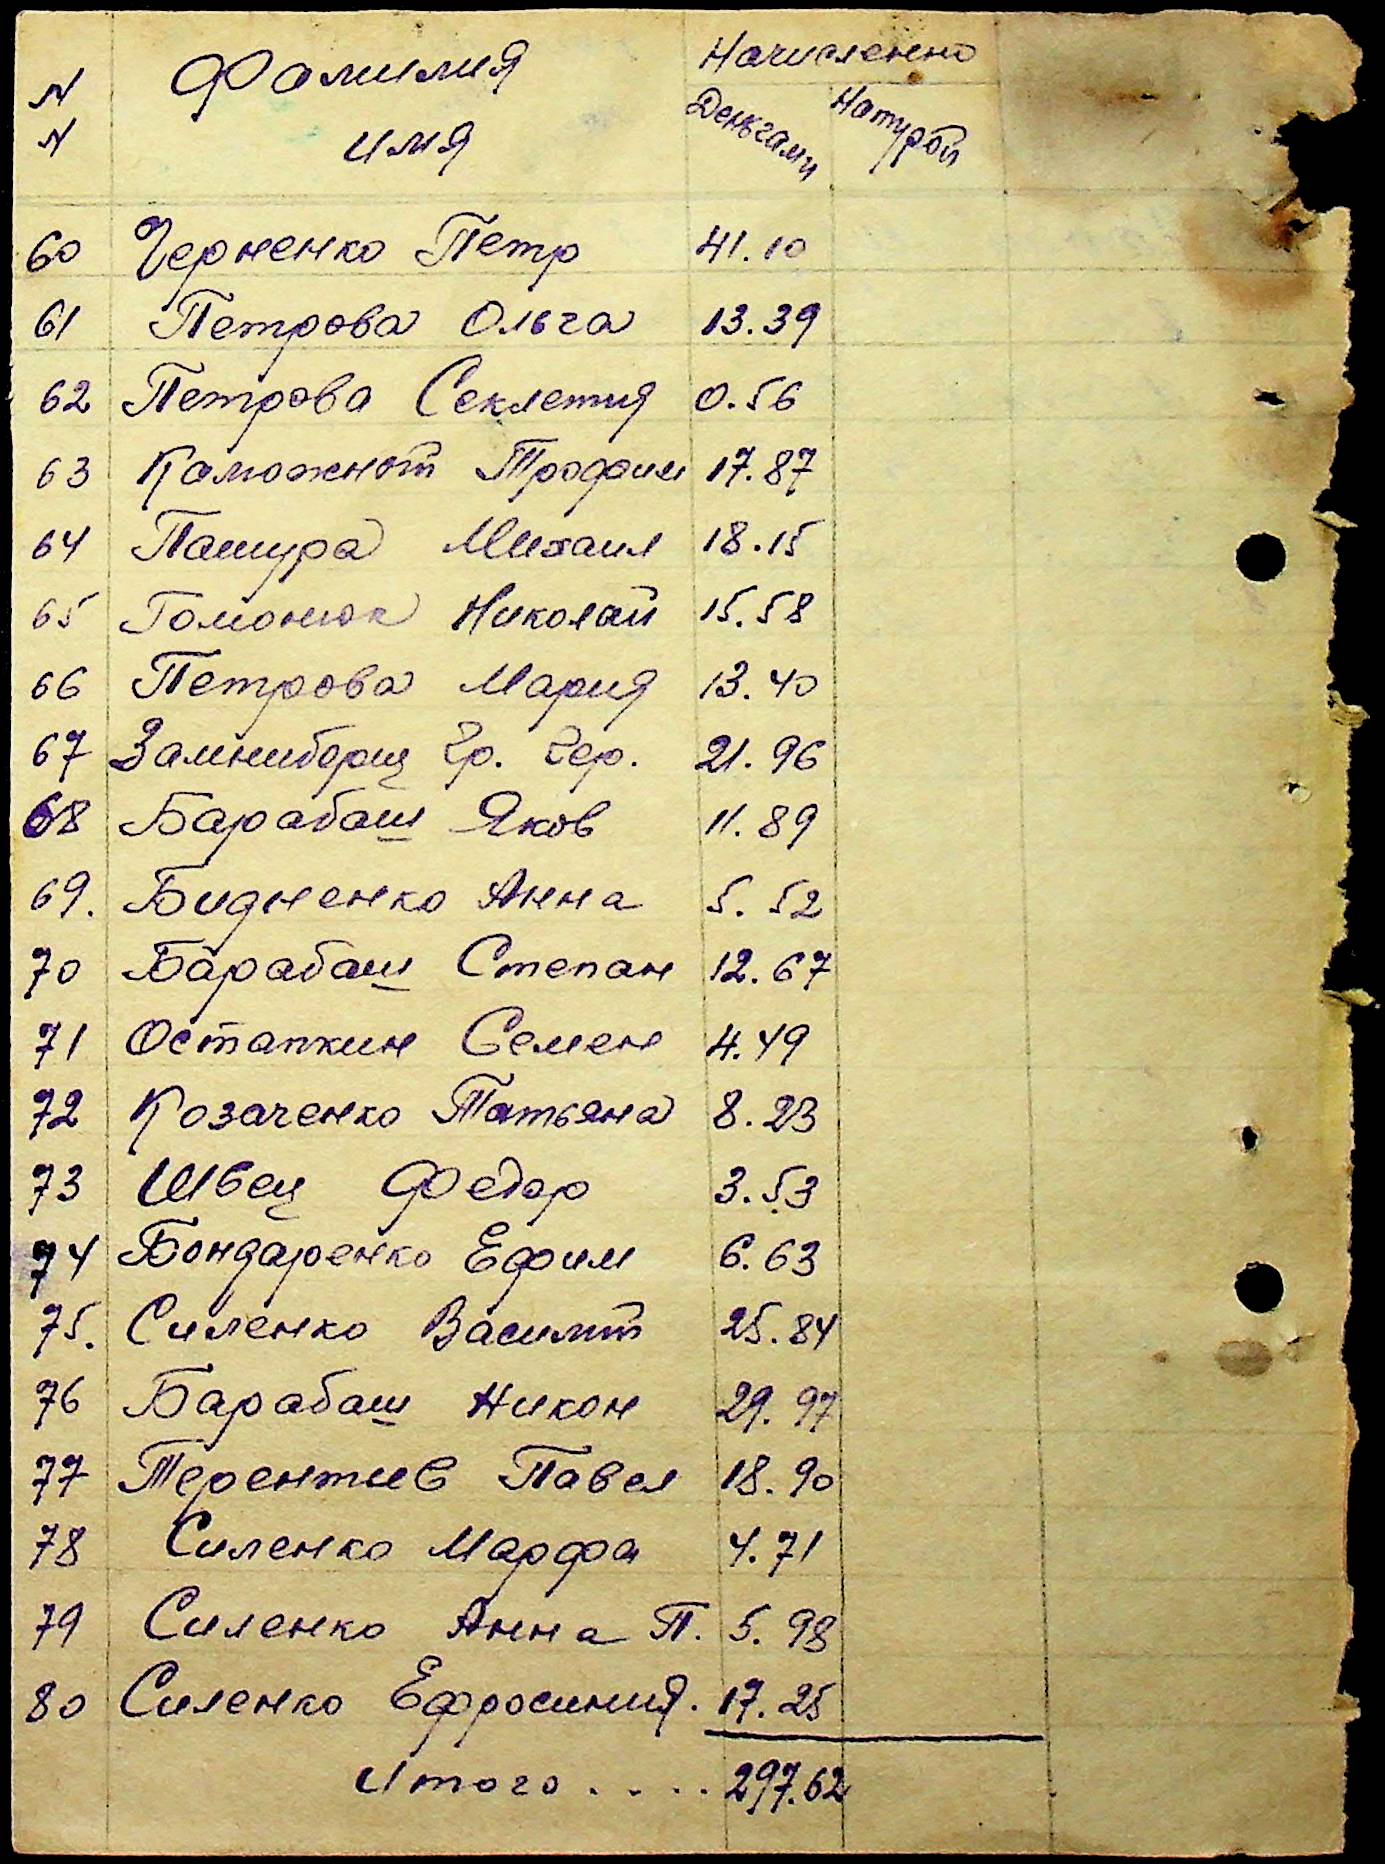 N Фамилия Начисленно
N имя Деньгами Натурой
60 Черненко Петр 41.10
61 Петрова Ольга 13.39
62 Петрова Секлетия 0.56
63 Трофим 17.87
64 Пашура Михаил 18.15
65 Гомонюк Николай 15.58
66 Петрова Мария 13.40
67 Замниборщ Гр. Гер. 21.96
68 Барабаш Яков 11.89
69. Бидненко Анна 5.52
70 Барабаш Степан 12.67
71 Остапкин Семен 4.49
72 Козаченко Татьяна 8.23
73 Швец Федор 3.53
74 Бондаренко Ефим 6.63
75. Силенко 25.84
76 Барабаш Никон 29.97
77 Терентиев Павел 18.90
78 Силенко Марфа 4.71
79 Силенко Анна П. 5.98
80 Силенко Ефросиния. 17.25
Итого . . . . 297.62